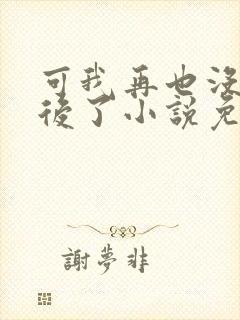 可我再也沒
後了小說免
謝夢非